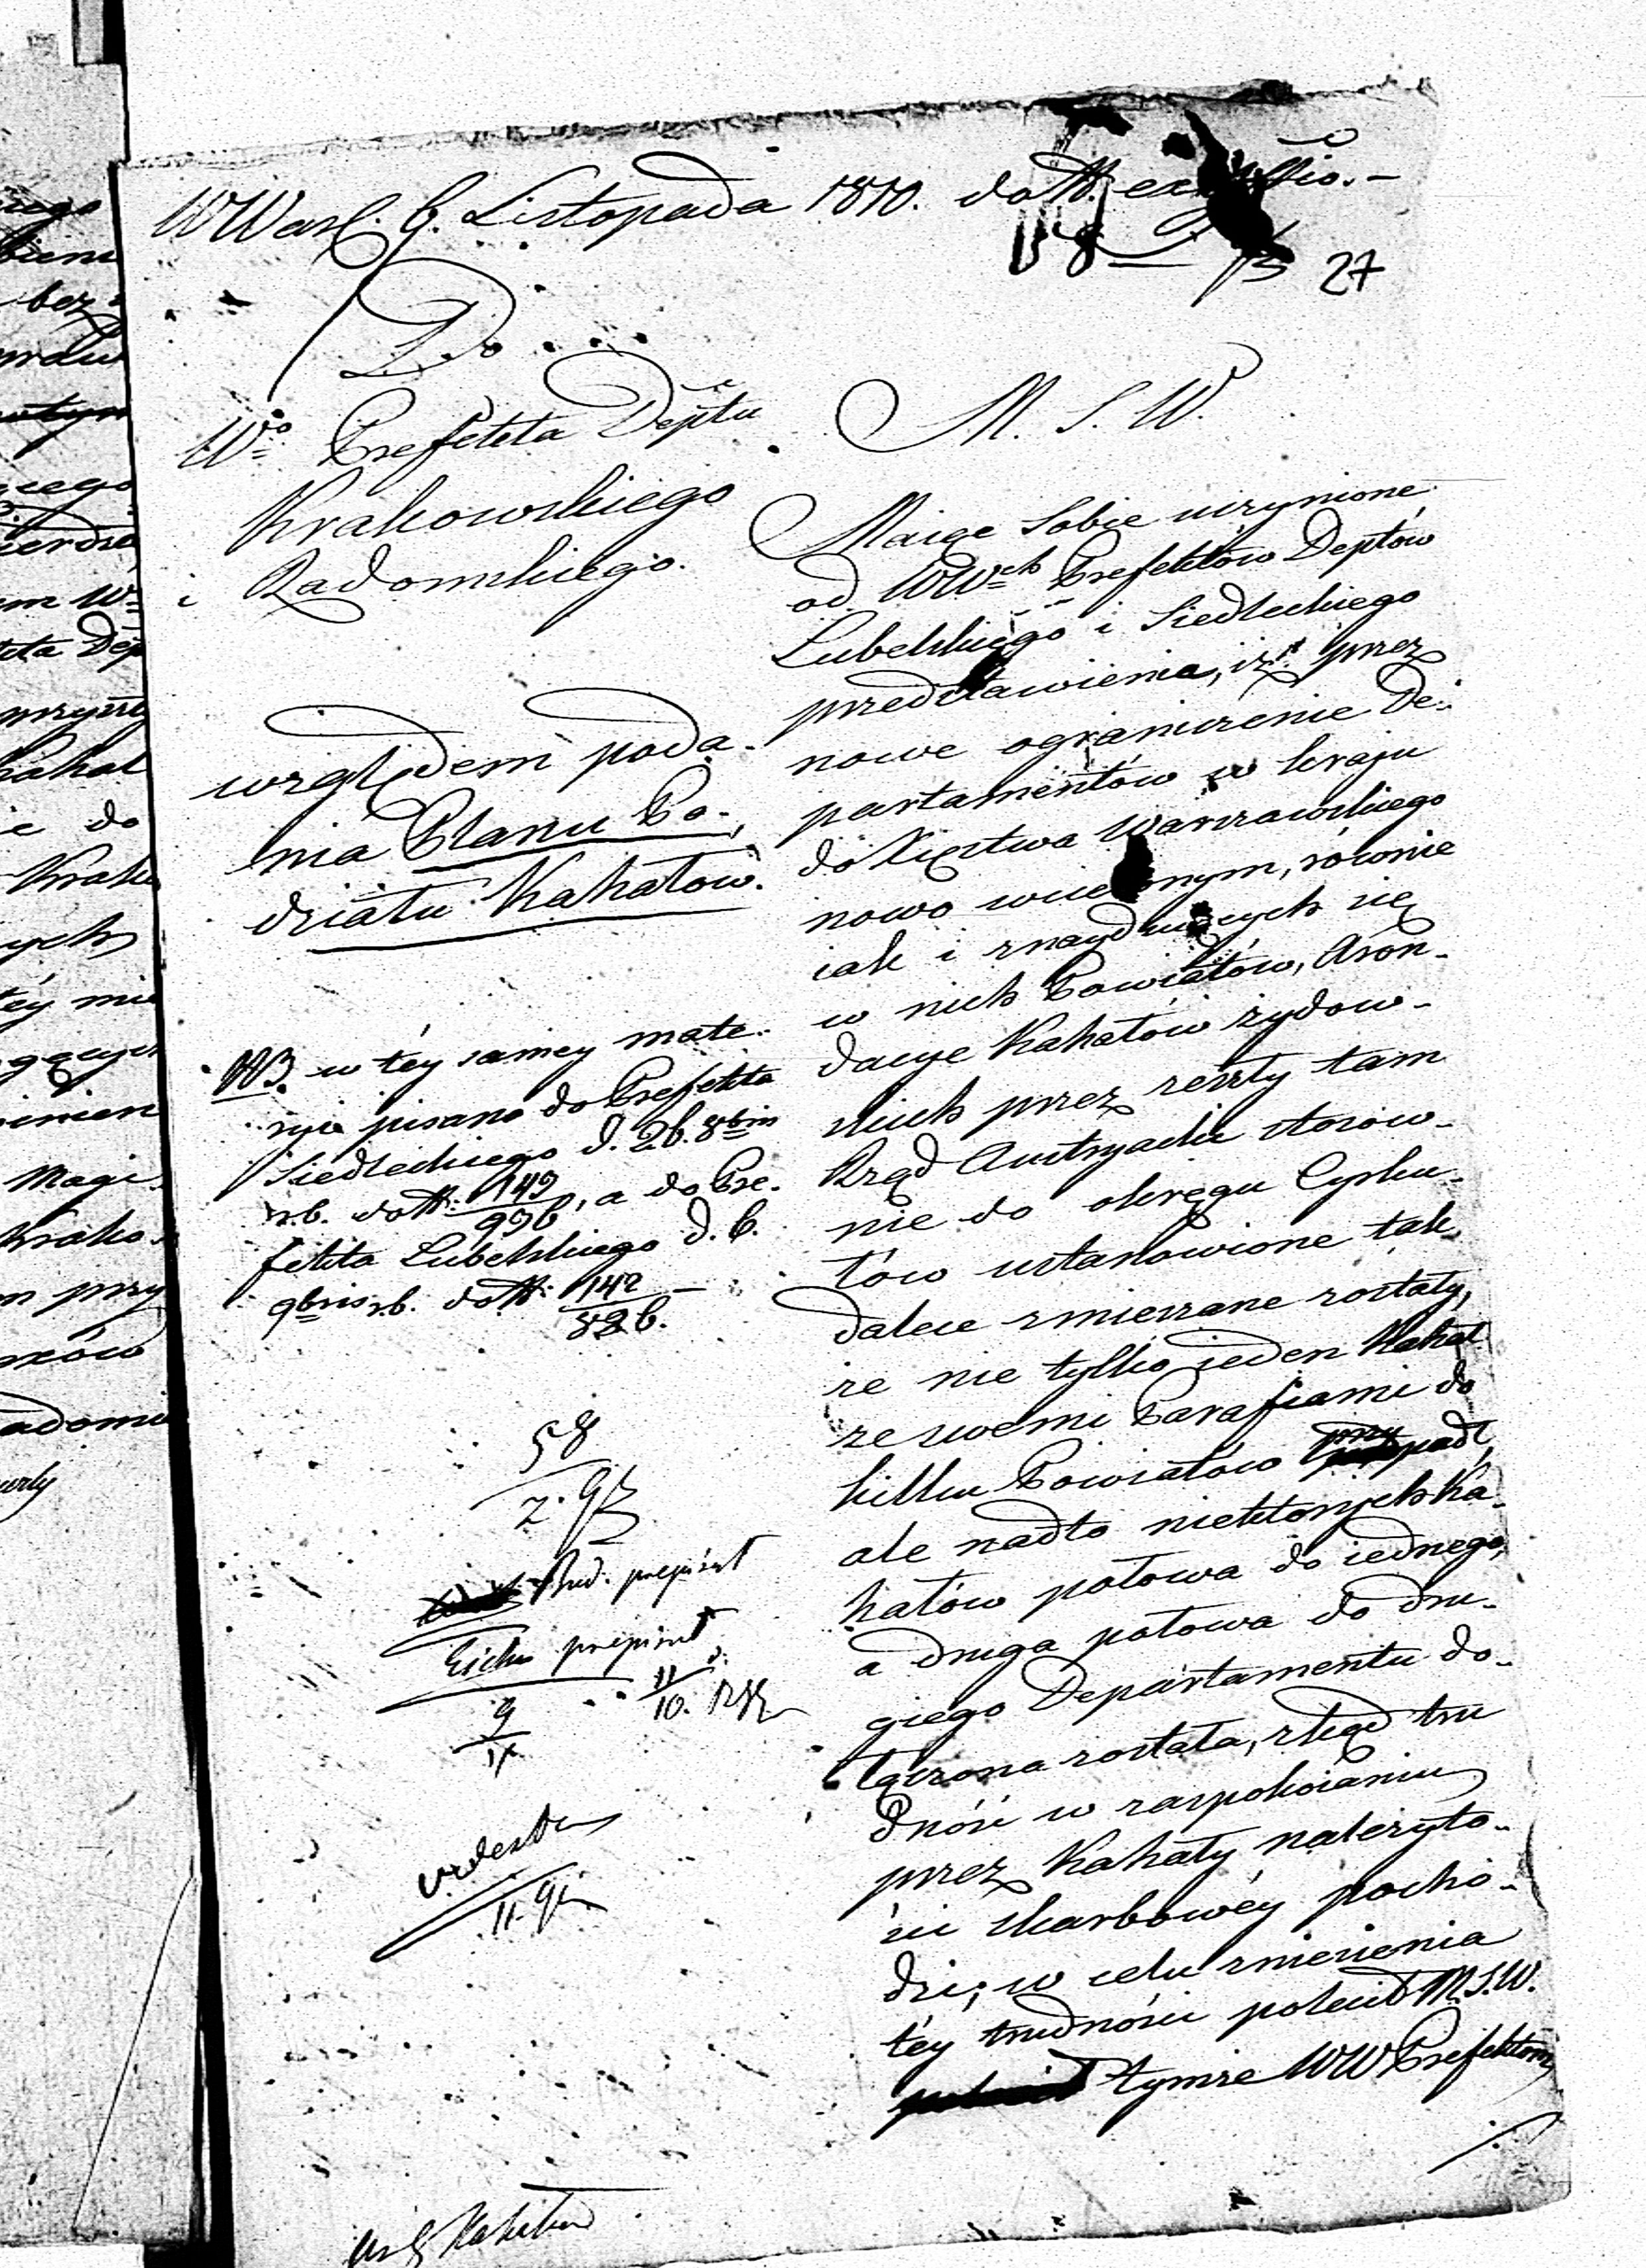 W Wars. 6. Listopada 1810. do N.
27
Do . . .
Wo Prefekta Deptu
Krakowskiego
i Radomskiego.
względem poda-
nia Planu Po-
działu Kahałow.
NB. w téy samey mate-
ryi pisano do Prefekta
Siedleckiego d. 26. 8bris
r.b. do N: 149, a do Pre-
fekta Lubelskiego d. 6.
9bris r.b. do N: 142
M. S. W.
Maiąc sobie uczynione
od WWch Prefektów Deptów
Lubelskiego i Siedleckiego
przedstawienia, iż przez
nowe ograniczenie De-
partamentów w kraju
do Xięstwa Warszawskiego
nowo wcielonym, równie
iak i znayduiących się
w nich Powiatów, Aron-
dacye Kahałów żydow-
skich przez reszty tam
Rząd Austryacki stosow-
nie do okręgu Cyrku-
łów ustanowione tak
dalece zmieszane zostały,
że nie tylko ieden Kahał
ze swemi Parafiami do
kilku Powiatów przypadł,
ale nadto niektorych Ka-
hałów połowa do iednego,
a druga połowa do dru-
giego Departamentu do-
łączona została, zkąd tru
dność w zaspokoianiu
przez Kahały należyto-
ści skarbowéy pocho-
dzi; w celu zniesienia
téy trudności polecił M.S.W.
tymże WW Prefektom
58
2. 9
Bud. przepisał
Eichn przepisał
11
10.
9
IX
11. 9